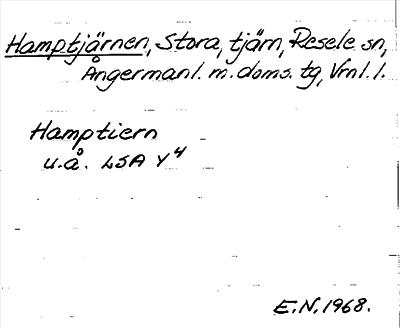 Hamptjärnen, Stora, tjärn, Resele sn,
Ångermanl. m. doms. tg, Vrnl. l.
Hamptiern
u.å. LSA Y4
E.N. 1968.